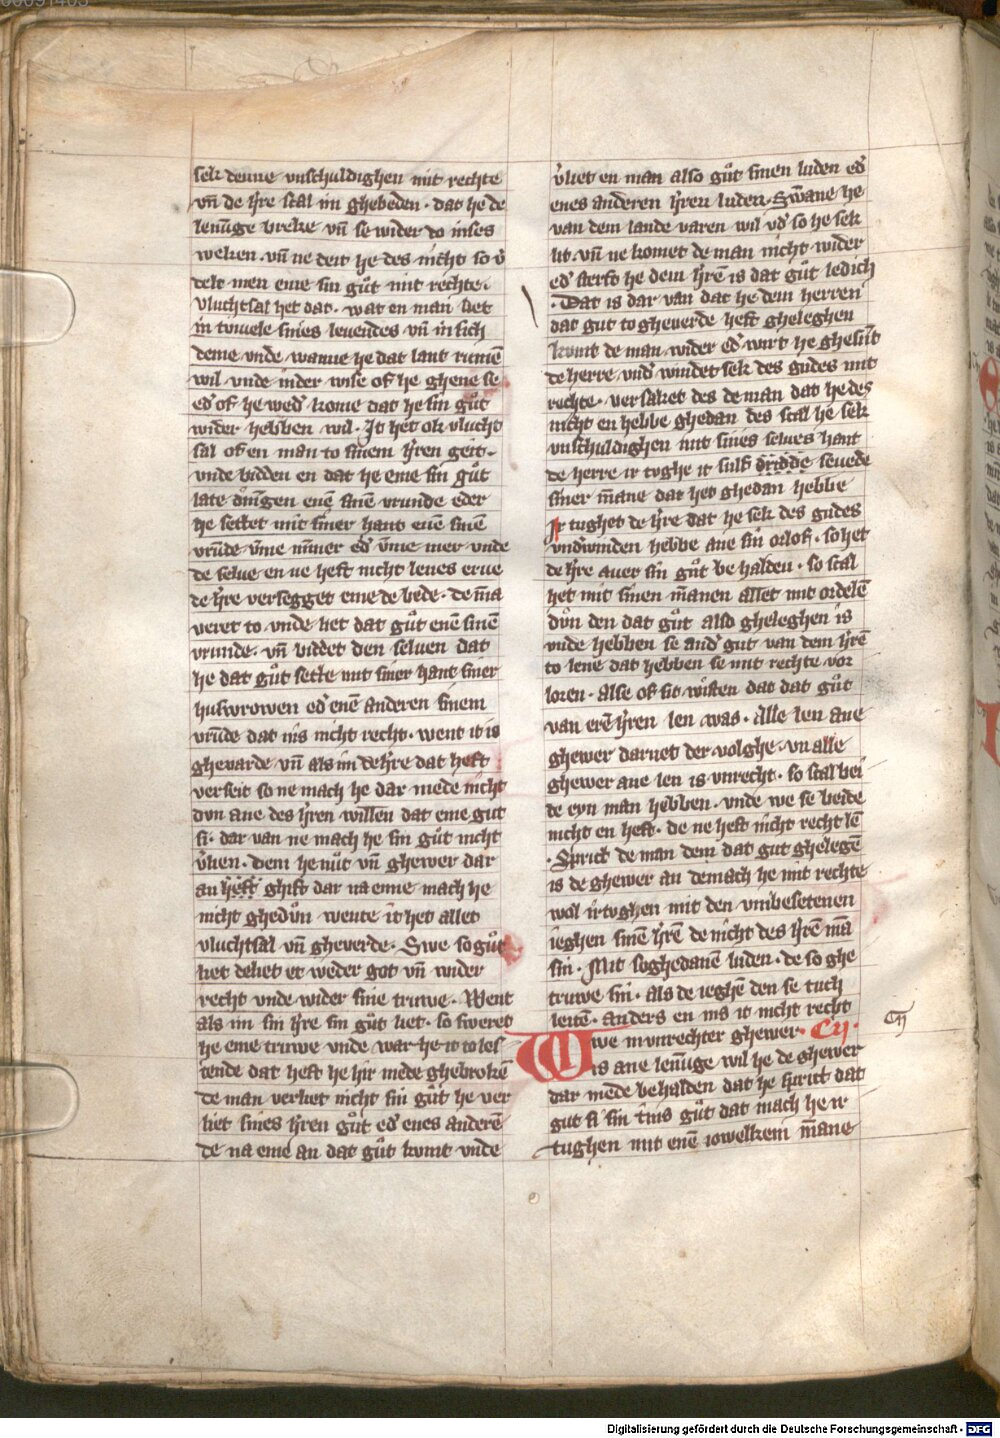 sek denne vnschuldighen mit rechte
vn̄ de h̓re scal im ghebeden · dat he de
lenu̅ge breke vn̄ se wider do inses
weken · vn̄ ne deit he des nicht so v̓
delt men eme sin gůt mit rechte ·
vluchtsal het dat · wat en man let
in twiuele sines leuendes vn̄ in sich
deme vnde wanne he dat lant rumē
wil vnde in der wise of he ghene se
ed̓ of he wed̓ kome dat he sin gůt
wider hebben wil · It het ok vlucht
sal of en man to sinem h̓ren geit ·
vnde bidden en dat he eme sin gůt
late enē sinē vrunde eder
he settet mit siner hant enē sinē
vrūde v̄me mīner ed̓ v̄me mer vnde
de selue en ne heft nicht lenes erue
de h̓re versegget eme de bede · de mā
veret to vnde let dat gůt enē sinē
vrunde · vn̄ biddet den seluen dat
he dat gůt sette mit siner hant siner
husvrowen ed̓ enē anderen sinem
vrūde dat nis nicht recht · went it is
gheuarde vn̄ als im de h̓re dat heft
verseit so ne mach he dar mede nicht
dvn ane des h̓ren willen dat eme gut
si · dar van ne mach he sin gůt nicht
v̓lien · Dem he nůt vn̄ ghewer dar
an heft ghift dar na eme mach he
nicht ghedůn wente it het allet
vluchtsal vn̄ gheverde · Swe so gůt
liet deliet et weder got vn̄ wider
recht vnde wider sine truwe · Went
als im sin h̓re sin gůt liet · so sweret
he eme truwe vnde war he it to les
tende dat heft he hir mede ghebrokē
de man verliet nicht sin gůt he ver
liet sines h̓ren gůt ed̓ enes anderē
de na eme an dat gůt komt vnde
v̓liet en man also gůt sinen luden ed̓
enes anderen h̓ren luden · Swane he
van dem lande varen wil vn̄ so he sek
lit · vn̄ ne komet de man nicht wider
ed̓ sterft he dem h̓rē is dat gůt ledich
· Dat is dar van dat he dem herren
dat gut to gheuerde heft gheleghen
komt de man wider ed̓ wirt he ghesūt
de herre vnd̓windet sek des gudes mit
rechte · versaket des de man dat he des
nicht en hebbe ghedan des scal he sek
vnschuldighen mit sines selues hant
de herre ir toghe it sulf dridde seuede
siner māne dat het ghedan hebbe
Ir tughet de h̓re dat he sek des gudes
vnd̓winden hebbe ane sin orlof · so het
de h̓re auer sin gůt be halden · so scal
het mit sinen mānen allet mit ordelē
důn den dat gůt also gheleghen is
vnde hebben se and̓ gut van dem h̓rē
to lene dat hebben se mit rechte vor
loren · alse of sit wisten dat dat gůt
van erē h̓ren len was · Alle len ane
ghewer darnet der volghe · vn alle
ghewer ane len is vnrecht · so scal bei
de eyn man hebben · vnde we se beide
nicht en heft · de ne heft nicht recht lē
· Sprict de man dem dat gut ghelegē
is de ghewer an demach he mit rechte
wol irtvghen mit den vmbesetenen
ieghen sinē h̓rē de nicht des h̓rē mā
sin · Mit soghedanē luden · de so ghe
truwe sin · als de ieghē den se tuch
leitē · anders en nis it nicht recht
Swe in vnrechter ghewer · Cij ·
is ane lenu̅ge wil he de ghewer
dar mede behalden dat he sprict dat
gut si sin tins gůt dat mach he ir
tughen mit enē iowelkem māne
Cij
Digitalisierung gefördert durch die Deutsche Forschungsgemeinschaft - DFG